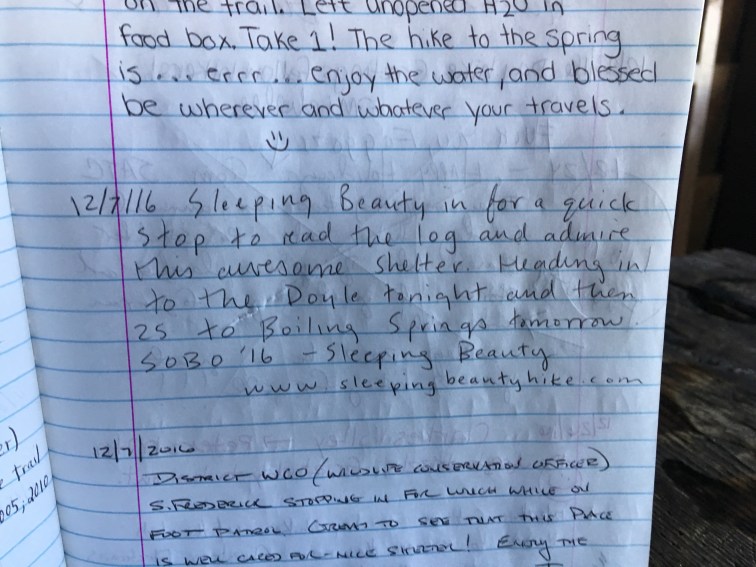 on the trail. Left unopened H2O in
food box. Take 1! The hike to the spring
is... errr... enjoy the water, and blessed
be wherever and whatever your travels.
12/7/16 Sleeping Beauty in for a quick
stop to read the log and admire
this awesome shelter. Heading in
to the Doyle tonight and then
25 to Boiling Springs tomorrow.
SOBO '16 - Sleeping Beauty
www.sleepingbeautyhike.com
12/7/2016
District WCO (Wildlife Conservation Officer)
S. Frederick stopping in for lunch while on
foot patrol. Great to see that this place
is well cared for - nice shelter! Enjoy the
er)
e trail
005; 2010